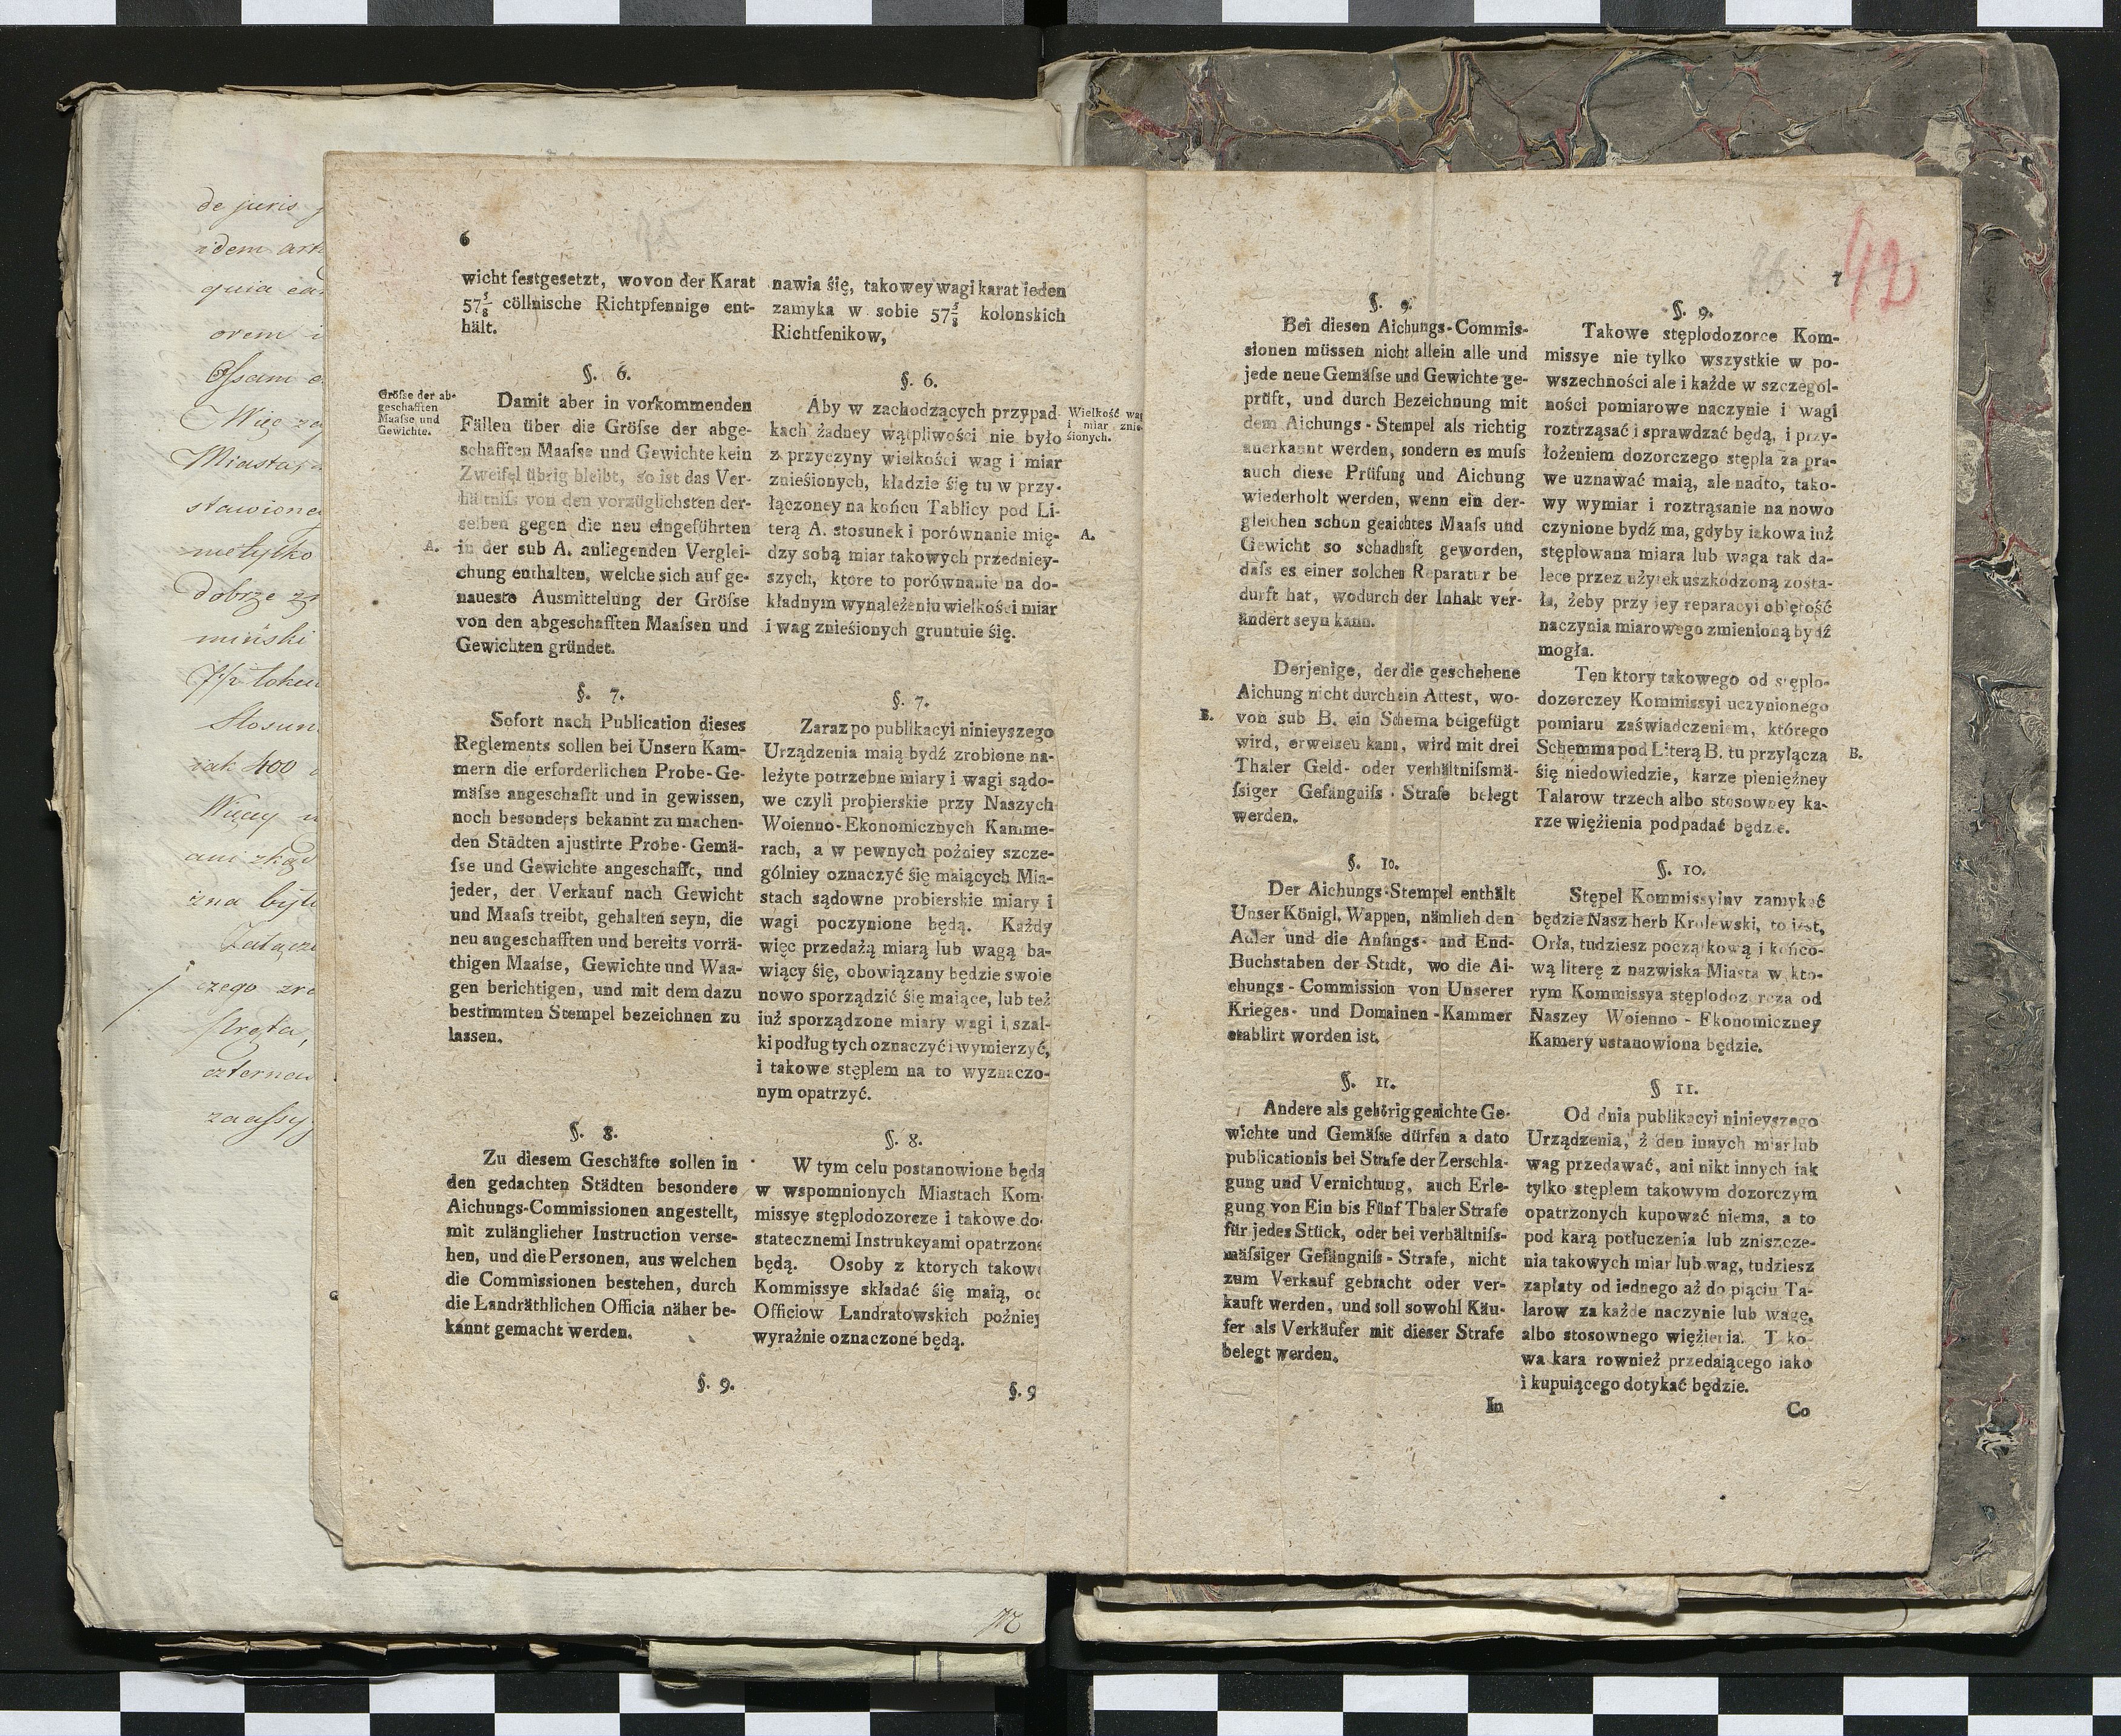 de juris
idem art
quia ea
orem i
Ossam
Więc
Miasta
stawione
nietylko
dobrze
miński
7 1/2 łoket
Stosun
iak 400
Więcy
ani
zna był
czego
czterna
72
6
wicht festgesetzt, wovon der Karat
57 5/8 cöllnische Richtpfennige ent-
hält.
§. 6.
Grösse der ab-
geschafften
Maasse und
Gewichte.
Damit aber in vorkommenden
Fällen über die Grösse der abge-
schafften Maasse und Gewichte kein
Zweifel übrig bleibt, so ist das Ver-
hältniss von den vorzüglichsten der-
selben gegen die neu eingeführten
A.
in der sub A. anliegenden Verglei-
chung enthalten, welche sich auf ge-
naueste Ausmittelung der Grösse
von den abgeschafften Maassen und
Gewichten gründet.
§. 7.
Sofort nach Publication dieses
Reglements sollen bei Unsern Kam-
mern die erforderlichen Probe-Ge-
mässe angeschafft und in gewissen,
noch besonders bekannt zu machen-
den Städten ajustirte Probe-Gemä-
sse und Gewichte angeschafft, und
jeder, der Verkauf nach Gewicht
und Maass treibt, gehalten seyn, die
neu angeschafften und bereits vorrä-
thigen Maasse, Gewichte und Waa-
gen berichtigen, und mit dem dazu
bestimmten Stempel bezeichnen zu
lassen.
§. 8.
Zu diesem Geschäfte sollen in
den gedachten Städten besondere
Aichungs-Commissionen angestellt,
mit zulänglicher Instruction verse-
hen, und die Personen, aus welchen
die Commissionen bestehen, durch
die Landräthlichen Officia näher be-
kannt gemacht werden.
§. 9.
nawia śię, takowey wagi karat ieden
zamyka w sobie 57 5/8 kolonskich
Richtfenikow,
§. 6.
Aby w zachodzących przypad-
kach żadney wątpliwości nie było
z przyczyny wielkości wag i miar
znieśionych, kładzie śię tu w przy-
łączoney na końcu Tablicy pod Li-
terą A. stosunek i porównanie mię-
dzy sobą miar takowych przedniey-
szych, ktore to porównanie na do-
kładnym wynależeniu wielkości miar
i wag znieśionych gruntuie śię.
Wielkość wag
i miar znie-
śionych.
A.
§. 7.
Zaraz po publikacyi ninieyszego
Urządzenia maią bydź zrobione na-
leżyte potrzebne miary i wagi sądo-
we czyli probierskie przy Naszych
Woienno-Ekonomicznych Kamme-
rach, a w pewnych poźniey szcze-
gólniey oznaczyć śię maiących Mia-
stach sądowne probierskie miary i
wagi poczynione będą. Każdy
więc przedażą miarą lub wagą ba-
wiący śię, obowiązany będzie swoie
nowo sporządzić śię maiące, lub też
iuż sporządzone miary wagi i szal-
ki podług tych oznaczyć i wymierzyć,
i takowe stęplem na to wyznaczo-
nym opatrzyć.
§. 8.
W tym celu postanowione będą
w wspomnionych Miastach Kom-
missye stęplodozorcze i takowe do-
statecznemi Instrukcyami opatrzone
będą. Osoby z ktorych takowe
Kommissye składać śię maią, od
Officiow Landratowskich poźniey
wyraźnie oznaczone będą.
§. 9
7
42
§. 9.
Bei diesen Aichungs-Commis-
sionen müssen nicht allein alle und
jede neue Gemässe und Gewichte ge-
prüft, und durch Bezeichnung mit
dem Aichungs-Stempel als richtig
anerkannt werden, sondern es muss
auch diese Prüfung und Aichung
wiederholt werden, wenn ein der-
gleichen schon geaichtes Maass und
Gewicht so schadhaft geworden,
dass es einer solchen Reparatur be
durft hat, wodurch der Inhalt ver-
ändert seyn kann.
Derjenige, der die geschehene
Aichung nicht durch ein Attest, wo-
B.
von sub B. ein Schema beigefügt
wird, erweisen kann, wird mit drei
Thaler Geld- oder verhältnissmä-
ssiger Gefängniss-Strafe belegt
werden.
§. 10.
Der Aichungs-Stempel enthält
Unser Königl. Wappen, nämlich den
Adler und die Anfangs- und End-
Buchstaben der Stadt, wo die Ai-
chungs-Commission von Unserer
Krieges- und Domainen-Kammer
etablirt worden ist.
§. 11.
Andere als gehörig geaichte Ge-
wichte und Gemässe dürfen a dato
publicationis bei Strafe der Zerschla-
gung und Vernichtung, auch Erle-
gung von Ein bis Fünf Thaler Strafe
für jedes Stück, oder bei verhältniss-
mässiger Gefängniss-Strafe, nicht
zum Verkauf gebracht oder ver-
kauft werden, und soll sowohl Käu-
fer als Verkäufer mit dieser Strafe
belegt werden.
In
§. 9.
Takowe stęplodozorce Kom-
missye nie tylko wszystkie w po-
wszechności ale i każde w szczegól-
ności pomiarowe naczynie i wagi
roztrząsać i sprawdzać będą, i przy-
łożeniem dozorczego stępla za pra-
we uznawać maią, ale nadto, tako-
wy wymiar i roztrąsanie na nowo
czynione bydź ma, gdyby iakowa iuż
stęplowana miara lub waga tak da-
lece przez użytek uszkodzoną zosta-
ła, żeby przy iey reparacyi obiętość
naczynia miarowego zmienioną bydź
mogła.
Ten ktory takowego od stęplo-
dozorczey Kommissyi uczynionego
pomiaru zaświadczeniem, którego
Schemma pod Literą B. tu przyłącza
B.
śię niedowiedzie, karze pieniężney
Talarow trzech albo stosowney ka-
rze więźienia podpadać będzie.
§. 10.
Stępel Kommissyiny zamykać
będzie Nasz herb Krolewski, to iest,
Orła, tudziesz początkową i końco-
wą literę z nazwiska Miasta w kto-
rym Kommissya stęplodozorcza od
Naszey Woienno-Ekonomiczney
Kamery ustanowiona będzie.
§ 11.
Od dnia publikacyi ninieyszego
Urządzenia, żaden innych miar lub
wag przedawać, ani nikt innych iak
tylko stęplem takowym dozorczym
opatrzonych kupować niema, a to
pod karą potłuczenia lub zniszcze-
nia takowych miar lub wag, tudziesz
zapłaty od iednego aż do pięciu Ta-
larow za każde naczynie lub wagę,
albo stosownego więźienia. Tako-
wa kara rownież przedaiącego iako
i kupuiącego dotykać będzie.
Co